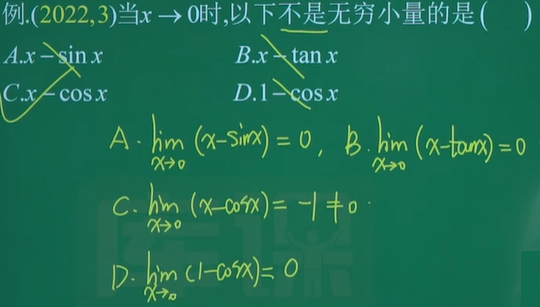 例.(2022,3)当x→0时,以下不是无穷小量的是( )
A.x-sin x B.x-tan x
C.x-cos x D.1-cos x
A. lim x→0 (x-sinx)=0, B. lim x→0 (x-tanx)=0
C. lim x→0 (x-cosx)=-1≠0.
D. lim x→0 (1-cosx)=0